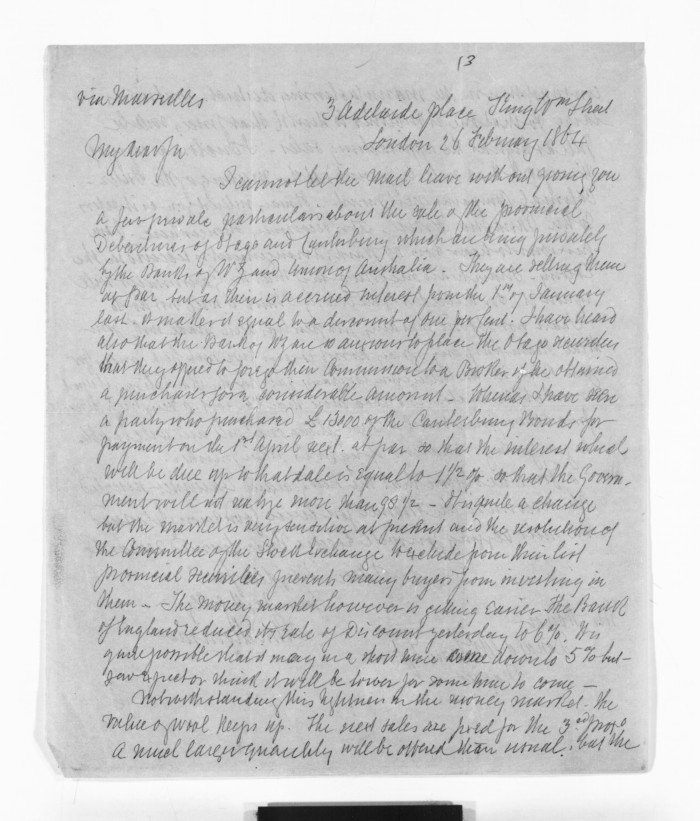 13
via Marseilles
3 Adelaide place King Wm Street
London 26 February 1864
My dear Sir
I cannot let the Mail leave without giving you
a few private particulars about the sale of the provincial
Debentures of Otago and Canterbury which are being privately
by the Banks of NZ and Union of Australia. They are selling them
at Par but as there is accrued interest from the 1st of January
last it makes it equal to a discount of one per cent. I have heard
also that the Bank of NZ are so anxious to place the Otago securities
that they offered to forego their Commission to a Broker if he obtained
a purchaser for a considerable amount - Whereas I have seen
a party who purchased £13000 of the Canterbury Bonds for
payment on the 1st April next at par so that the interest which
will be due up to that date is equal to 1 1/2 % so that the Govern-
ment will not realize more than 98 1/2 - It is quite a change
but the market is very sensitive at present and the resolution of
the Committee of the Stock Exchange to exclude from their list
provincial securities prevents many buyers from investing in
them - The money market however is getting easier The Bank
of England reduced its rate of Discount yesterday to 6%. It is
quite possible that it may in a short time come down to 5% but
few expect or think it will be lower for some time to come -
Notwithstanding this tightness in the money market the
value of wool keeps up. The next sales are fixed for the 3rd
A much larger quantity will be offered than usual, but the